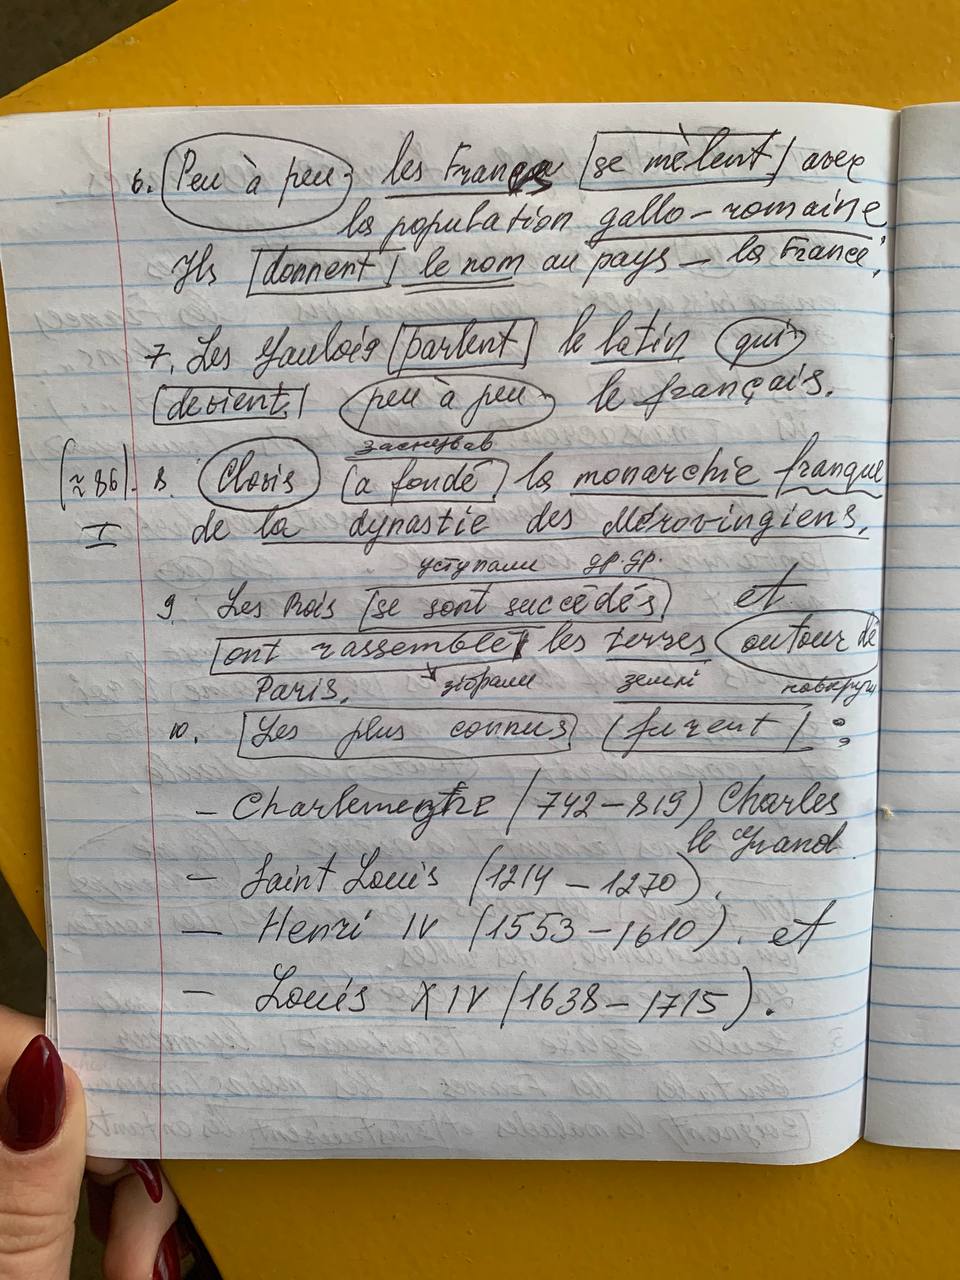 6. Peu à peu les Francs se mèlent avec
la population gallo-romaine
Ils donnent le nom au pays — la France.
7. Les Gaulois parlent le latin qui
devient peu à peu le français.
заснував
(≈86). 8. Clovis a fondé la monarchie franque
I de la dynastie des Mérovingiens.
уступали др. др.
9. Les Rois se sont succédés et
ont rassemblé les terres autour de
Paris. зібрали землі навкруги
10. Les plus connus furent :
— Charlemagne (742–819) Charles
le Grand
— Saint Louis (1214 – 1270),
— Henri IV (1553–1610). et
— Louis XIV (1638–1715).